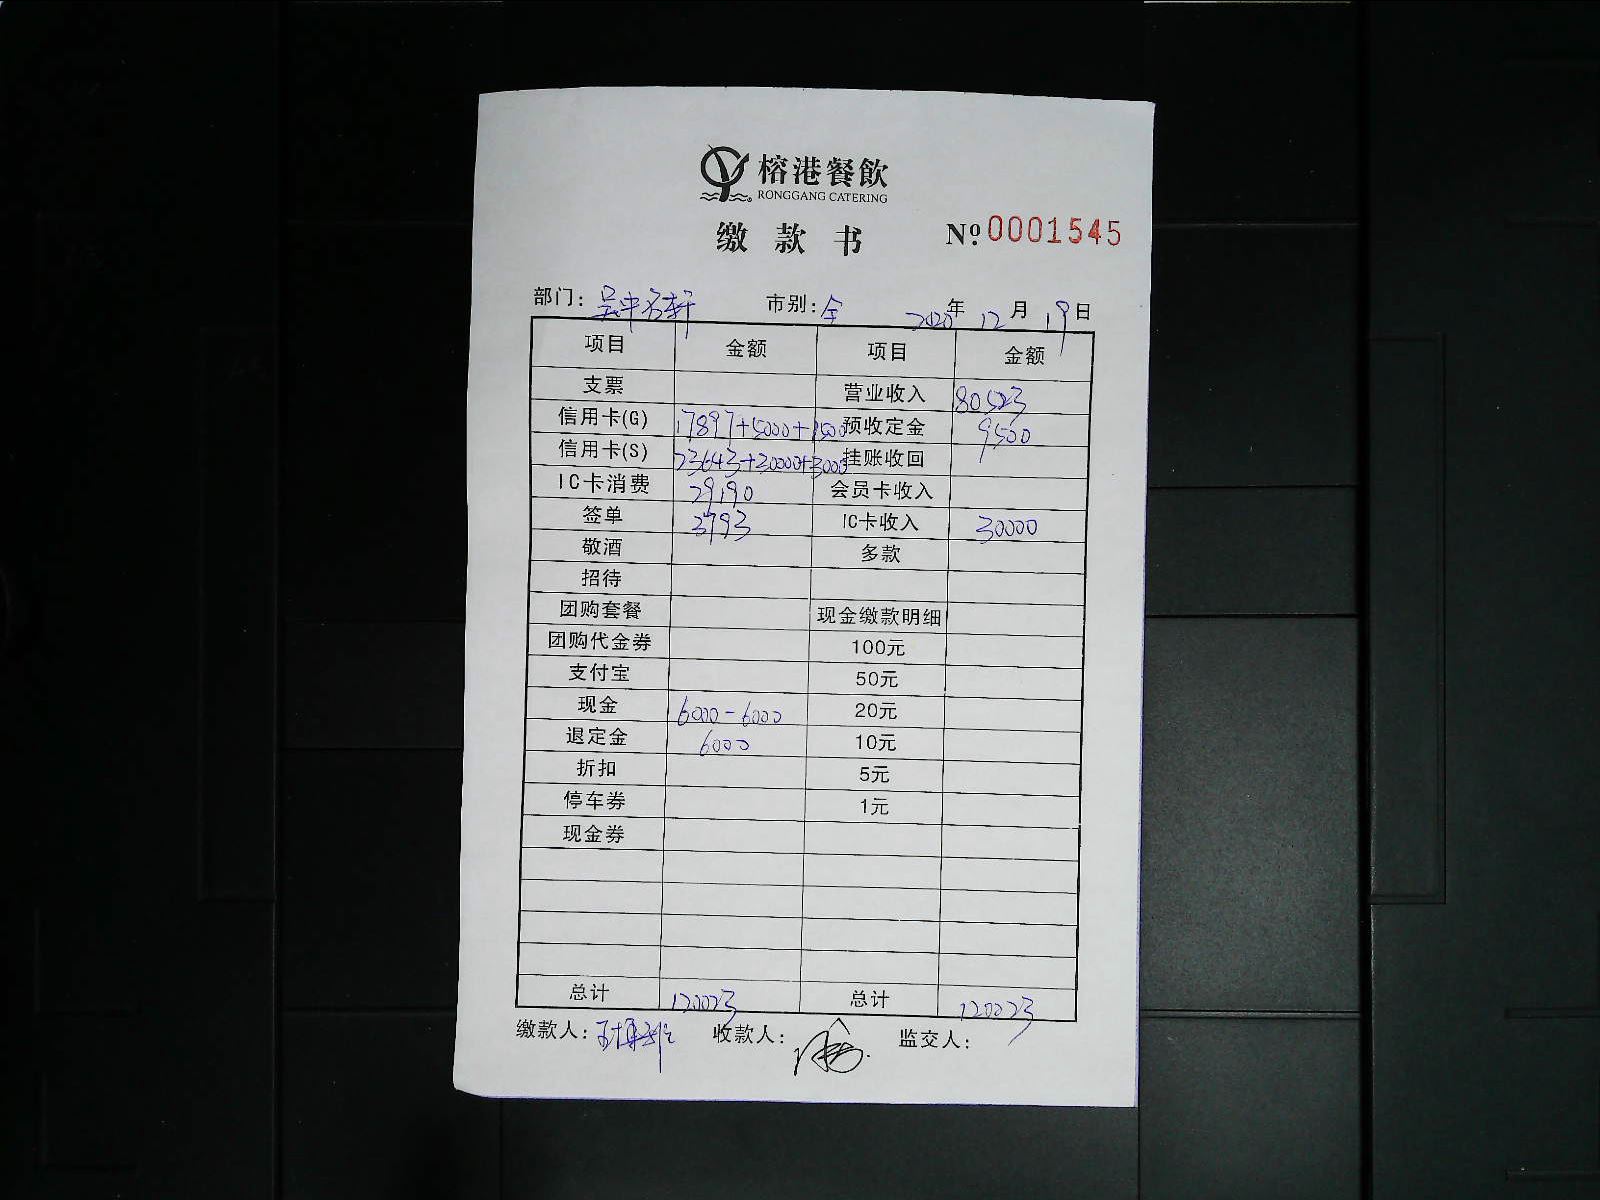 榕港餐飲
RONGGANG CATERING
缴款书 Nº 0001545
部门: 吴中名轩 市别: 全 2020年12月19日
项目 金额 项目 金额
支票 营业收入 80523
信用卡(G) 17897+5000+1500 预收定金 9500
信用卡(S) 23643+30000+3000 挂账收回
IC卡消费 29190 会员卡收入
签单 3793 IC卡收入 30000
敬酒 多款
招待
团购套餐 现金缴款明细
团购代金券 100元
支付宝 50元
现金 6000-6000 20元
退定金 6000 10元
折扣 5元
停车券 1元
现金券
总计 120023 总计 120023
缴款人: 收款人: 监交人: